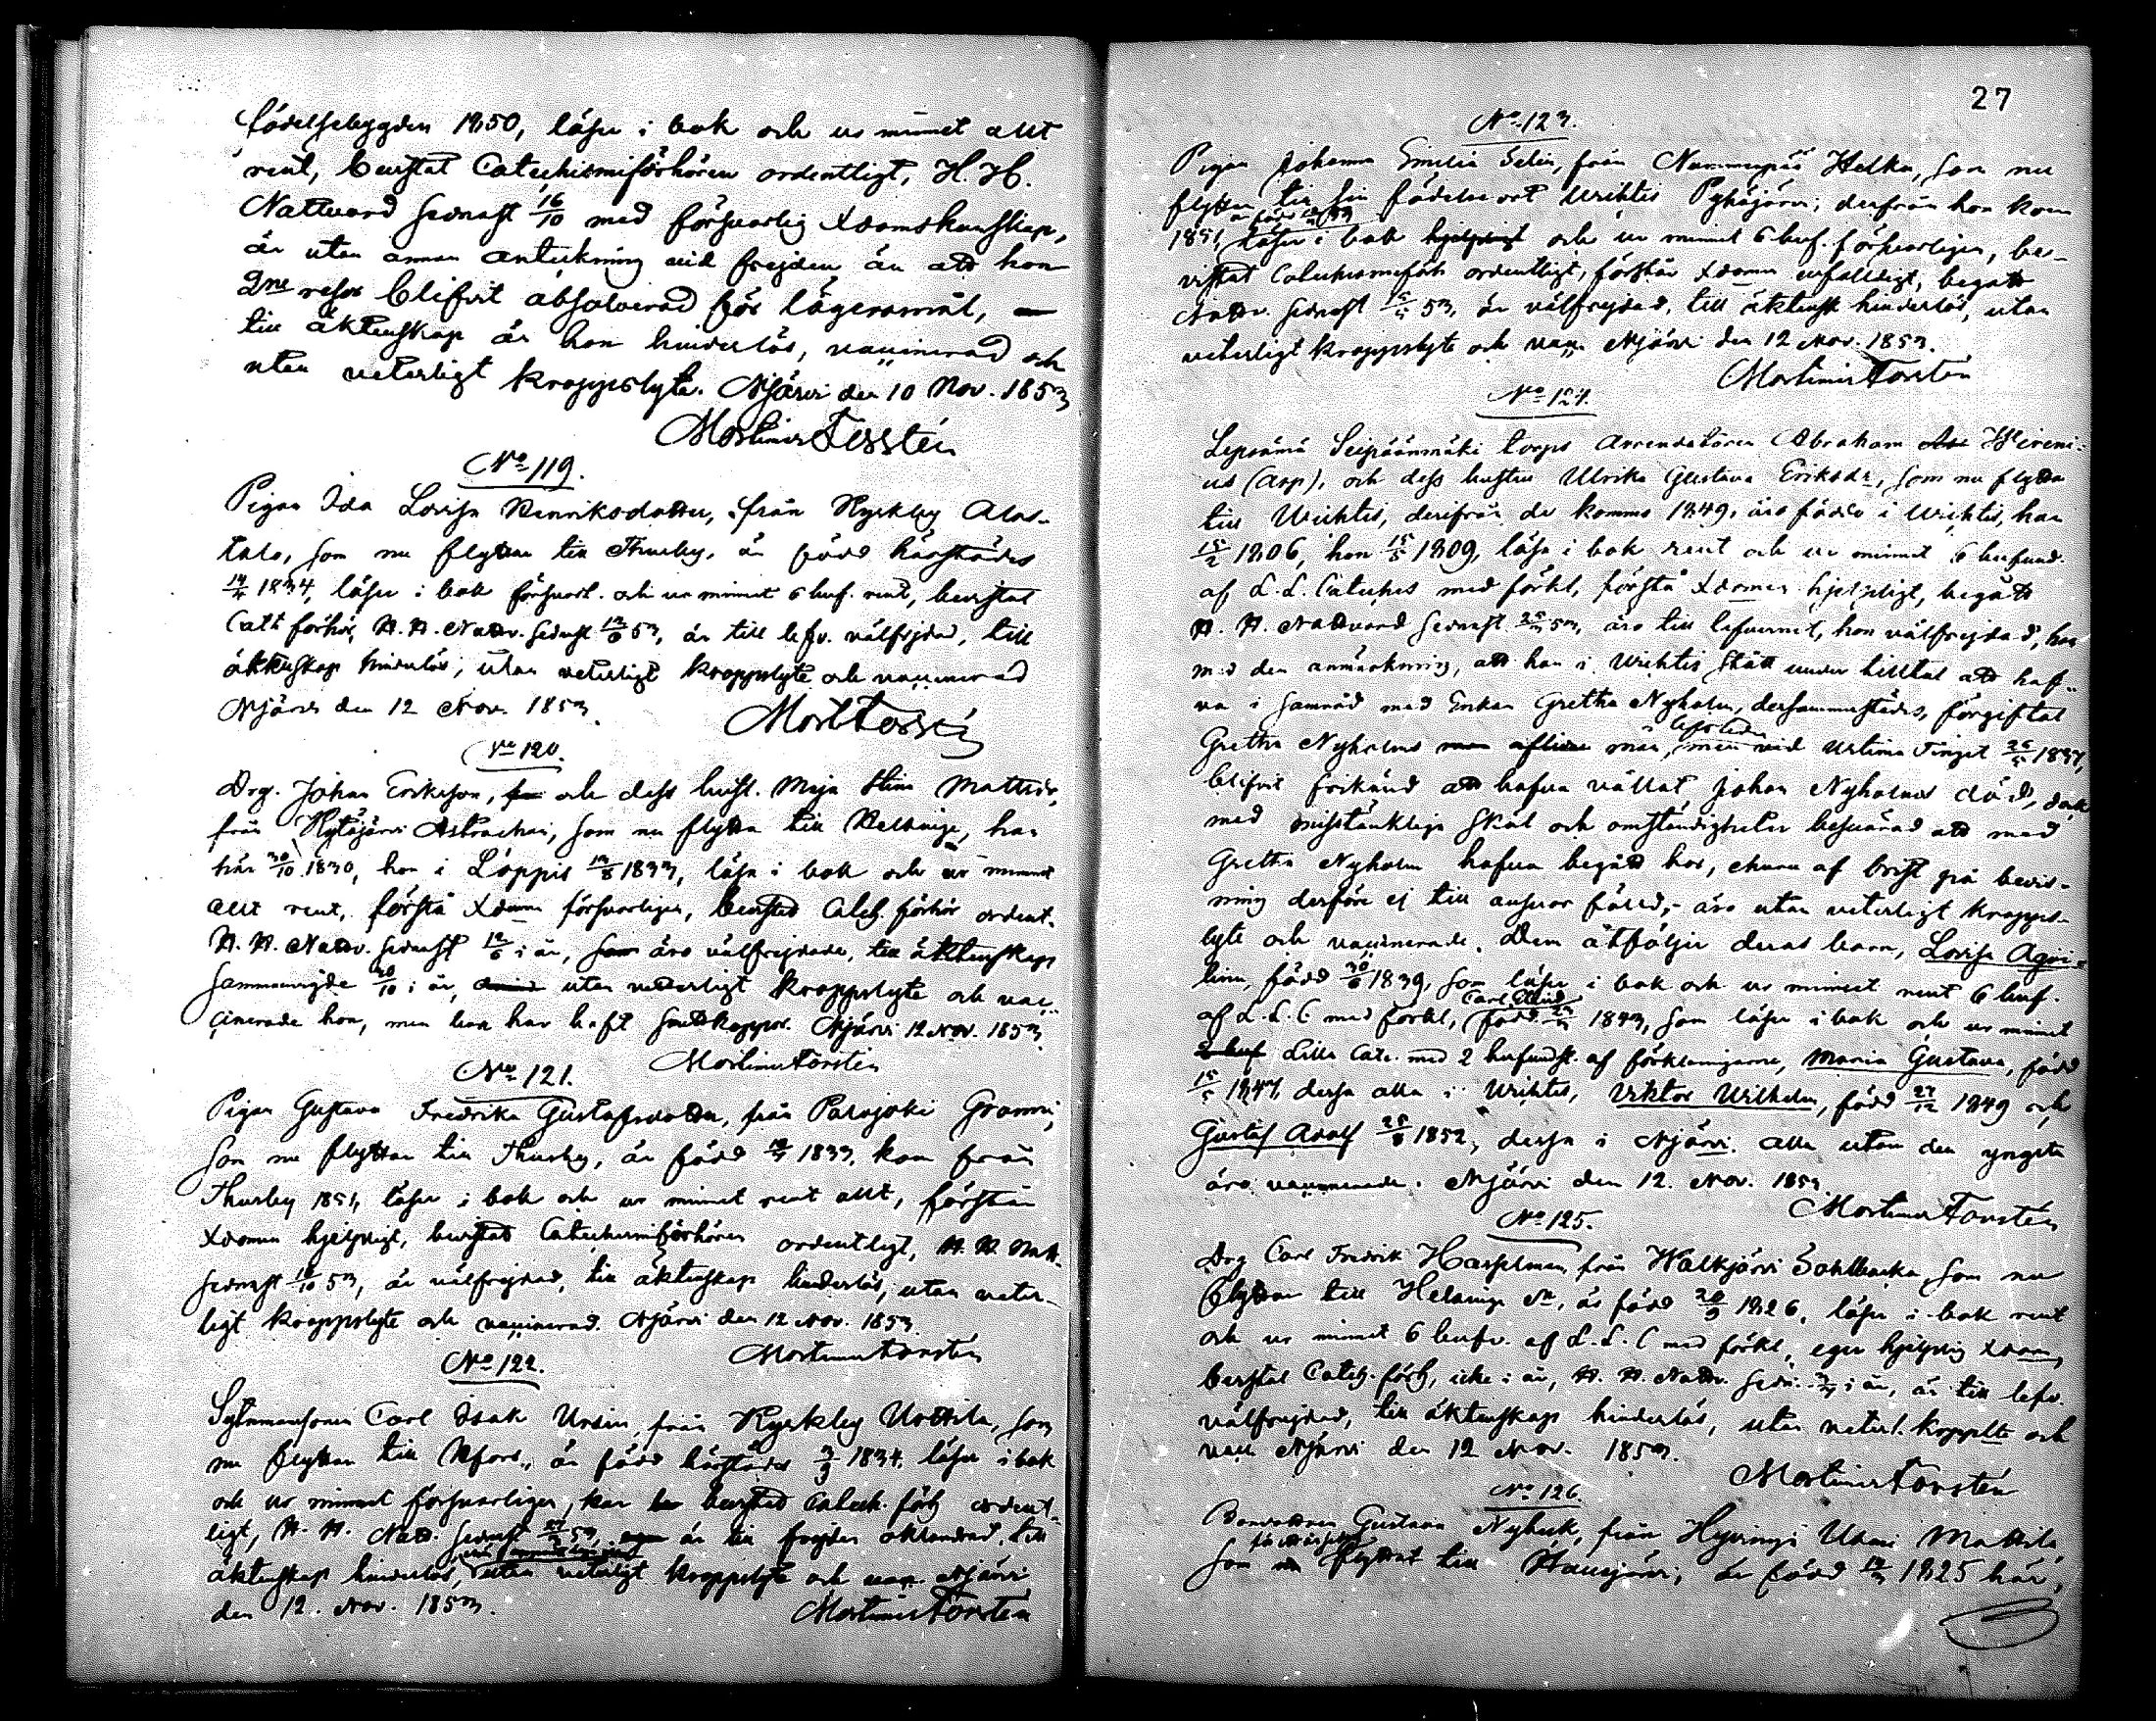 födelsebygden 1850, läser i bok och ur minnet allt
rent, bevistat Catechismiförhören ordentligt, H. H.
Nattvard sednast 16/10 med försvarlig Xdomskunskap,
är utan annan anteckning vid frejden än att hon
2ne resor blifvit absolverad för lägersmål,
till äktenskap är hon hinderlös, vaccinerad och
utan veterligt kroppslyte. NJärvi den 10 Nov. 1853
Mortimer Forstén
No 119.
Pigan Ida Lovisa Henriksdotter, från Kyrkby Alas-
talo, som nu flyttar till Thusby, är född härstädes
1834, läser i bok försvarl. och ur minnet 6 huf. rent, bevistat
Cat: förhör, H. H. Nattv. sednast 53, är till lefv. välfrejdad, till
äktenskap hinderlös, utan veterligt kroppslyte och vaccinerad
NJärvi den 12 Nov. 1853.
Mort Forstén
No 120.
Drg. Johan Eriksson, och dess hust. Maja Stina Mattsdr,
från Hytäjärvi Astrachan, som nu flytta till Helsinge, han
här 30/10 1830, hon i Loppis 1833, läsa i bok och ur minnet
allt rent, förstå Xdomen försvarligen, bevistat Catech. förhör ordent.
H. H. Nattv. sednast i år, äro välfrejdade, till äktenskap
sammanvigde 30/10 i år, utan veterligt kroppslyte och vac-
cinerade hon, men han har haft smittkoppor. NJärvi 12 Nov. 1853.
Mortimer Forstén
No 121.
Pigan Gustava Fredrika Gustafsdotter, från Palojoki Granni,
som nu flyttar till Thusby, är född 1833, kom från
Thusby 1851, läser i bok och ur minnet rent allt, förstår
Xdomen hjelpligt, bevistat Catechismiförhören ordentligt, H. H. Natt.
sednast 53, är välfrejdad, till äktenskap hinderlös, utan veter-
ligt kroppslyte och vaccinerad. NJärvi den 12 Nov. 1853.
Mortimer Forstén
No 122.
Sytnmanssonen Carl Isak Ursin, från Kyrkby Uottila, som
nu flyttar till Hfors., är född härstädes 3/9 1834, läser i bok
och ur minnet försvarligen, har bevistat Catech. förh ordent-
ligt, H. H. Nattv. sednast 53, är till frejden oklandrad, till
äktenskap hinderlös, utan veterligt kroppslyte och vacc. NJärvi
den 12. Nov. 1853.
Mortimer Forstén
27
No 123.
Pigan Johanna Emilia Selin, från Nummenpää Helka, som nu
flyttar till sin födelseort Wichtis Pyhäjärvi, derifrån hon kom
1851, läser i bok och ur minnet 6 huf. försvarligen, be-
vistat Catechismiförh ordentligt, förstår Xdomen enfaldigt, begått
Nattv. sednast 53, är välfrejdad, till äktensk hinderlös, utan
veterligt kroppslyte och vacc. NJärvi den 12 Nov. 1853.
Mortimer Forstén
No 124.
Lepsämä Seipäänmäki torps Arrendatoren Abraham Hireni-
us (Asp), och dess hustru Ulrika Gustava Eriksdr, som nu flytta
till Wichtis, derifrån de kommo 1849, äro födde i Wichtis, han
15/2 1806, hon 15/8 1809, läsa i bok rent och ur minnet 6 hufvud.
af L. L. Cateches med förkl, förstå Xdomen hjelpligt, begått
H. H. Nattvard sednast 53, äro till lefvernet, hon välfrejdad, han
med den anmärkning, att han i Wichtis stått under tilltal att haf-
va i samråd med Enkan Gretha Nyholm, dersammastädes, förgiftat
Gretha Nyholms man, men vid Urtima Tinget 1837,
blifvit frikänd att hafva vållat Johan Nyholms död, dock
med misstänkliga skäl och omständigheter besvärad att med
Gretha Nyholm hafva begått hor, ehuru af brist på bevis-
ning derföre ej till ansvar fälld,- äro utan veterligt kropps-
lyte och vaccinerade. Dem åtföljer deras barn, Lovisa Agri-
lina, född 30/6 1839, som läser i bok och ur minnet rent 6 huf.
af L. L. C med förkl, Carl född 1843, som läser i bok och ur minnet
Lilla Cate. med 2 hufvudst. af förklaringarne, Maria Gustava, född
1847, dessa alla i Wichtis, Viktor Wilhelm, född 27/12 1849 och
Gustaf Adolf 25/8 1852, dessa i NJärvi. Alla utom den yngsta
äro vaccinerade. NJärvi den 12. Nov. 1853
Mortimer Forstén
No 125.
Drg Carl Fredrik Hasselman från Walkjärvi Sahlbacka, som nu
flyttar till Helsinge Sn, är född 20/9 1826, läser i bok rent
och ur minnet 6 hufv. af L. L. C med förkl, eger hjelplig Xdom,
bevistat Catech. förh, icke i år, H. H. Nattv. sedn. i år, är till lefv.
välfrejdad, till äktenskap hinderlös, utan veterl. kroppslte och
vacc NJärvi den 12 Nov. 1853.
Mortimer Forstén
No 126.
Bondedottren Gustava Nybeck, från Hyvinge Utani Mattila,
som flyttat till Hausjärvi, är född 1825 här,